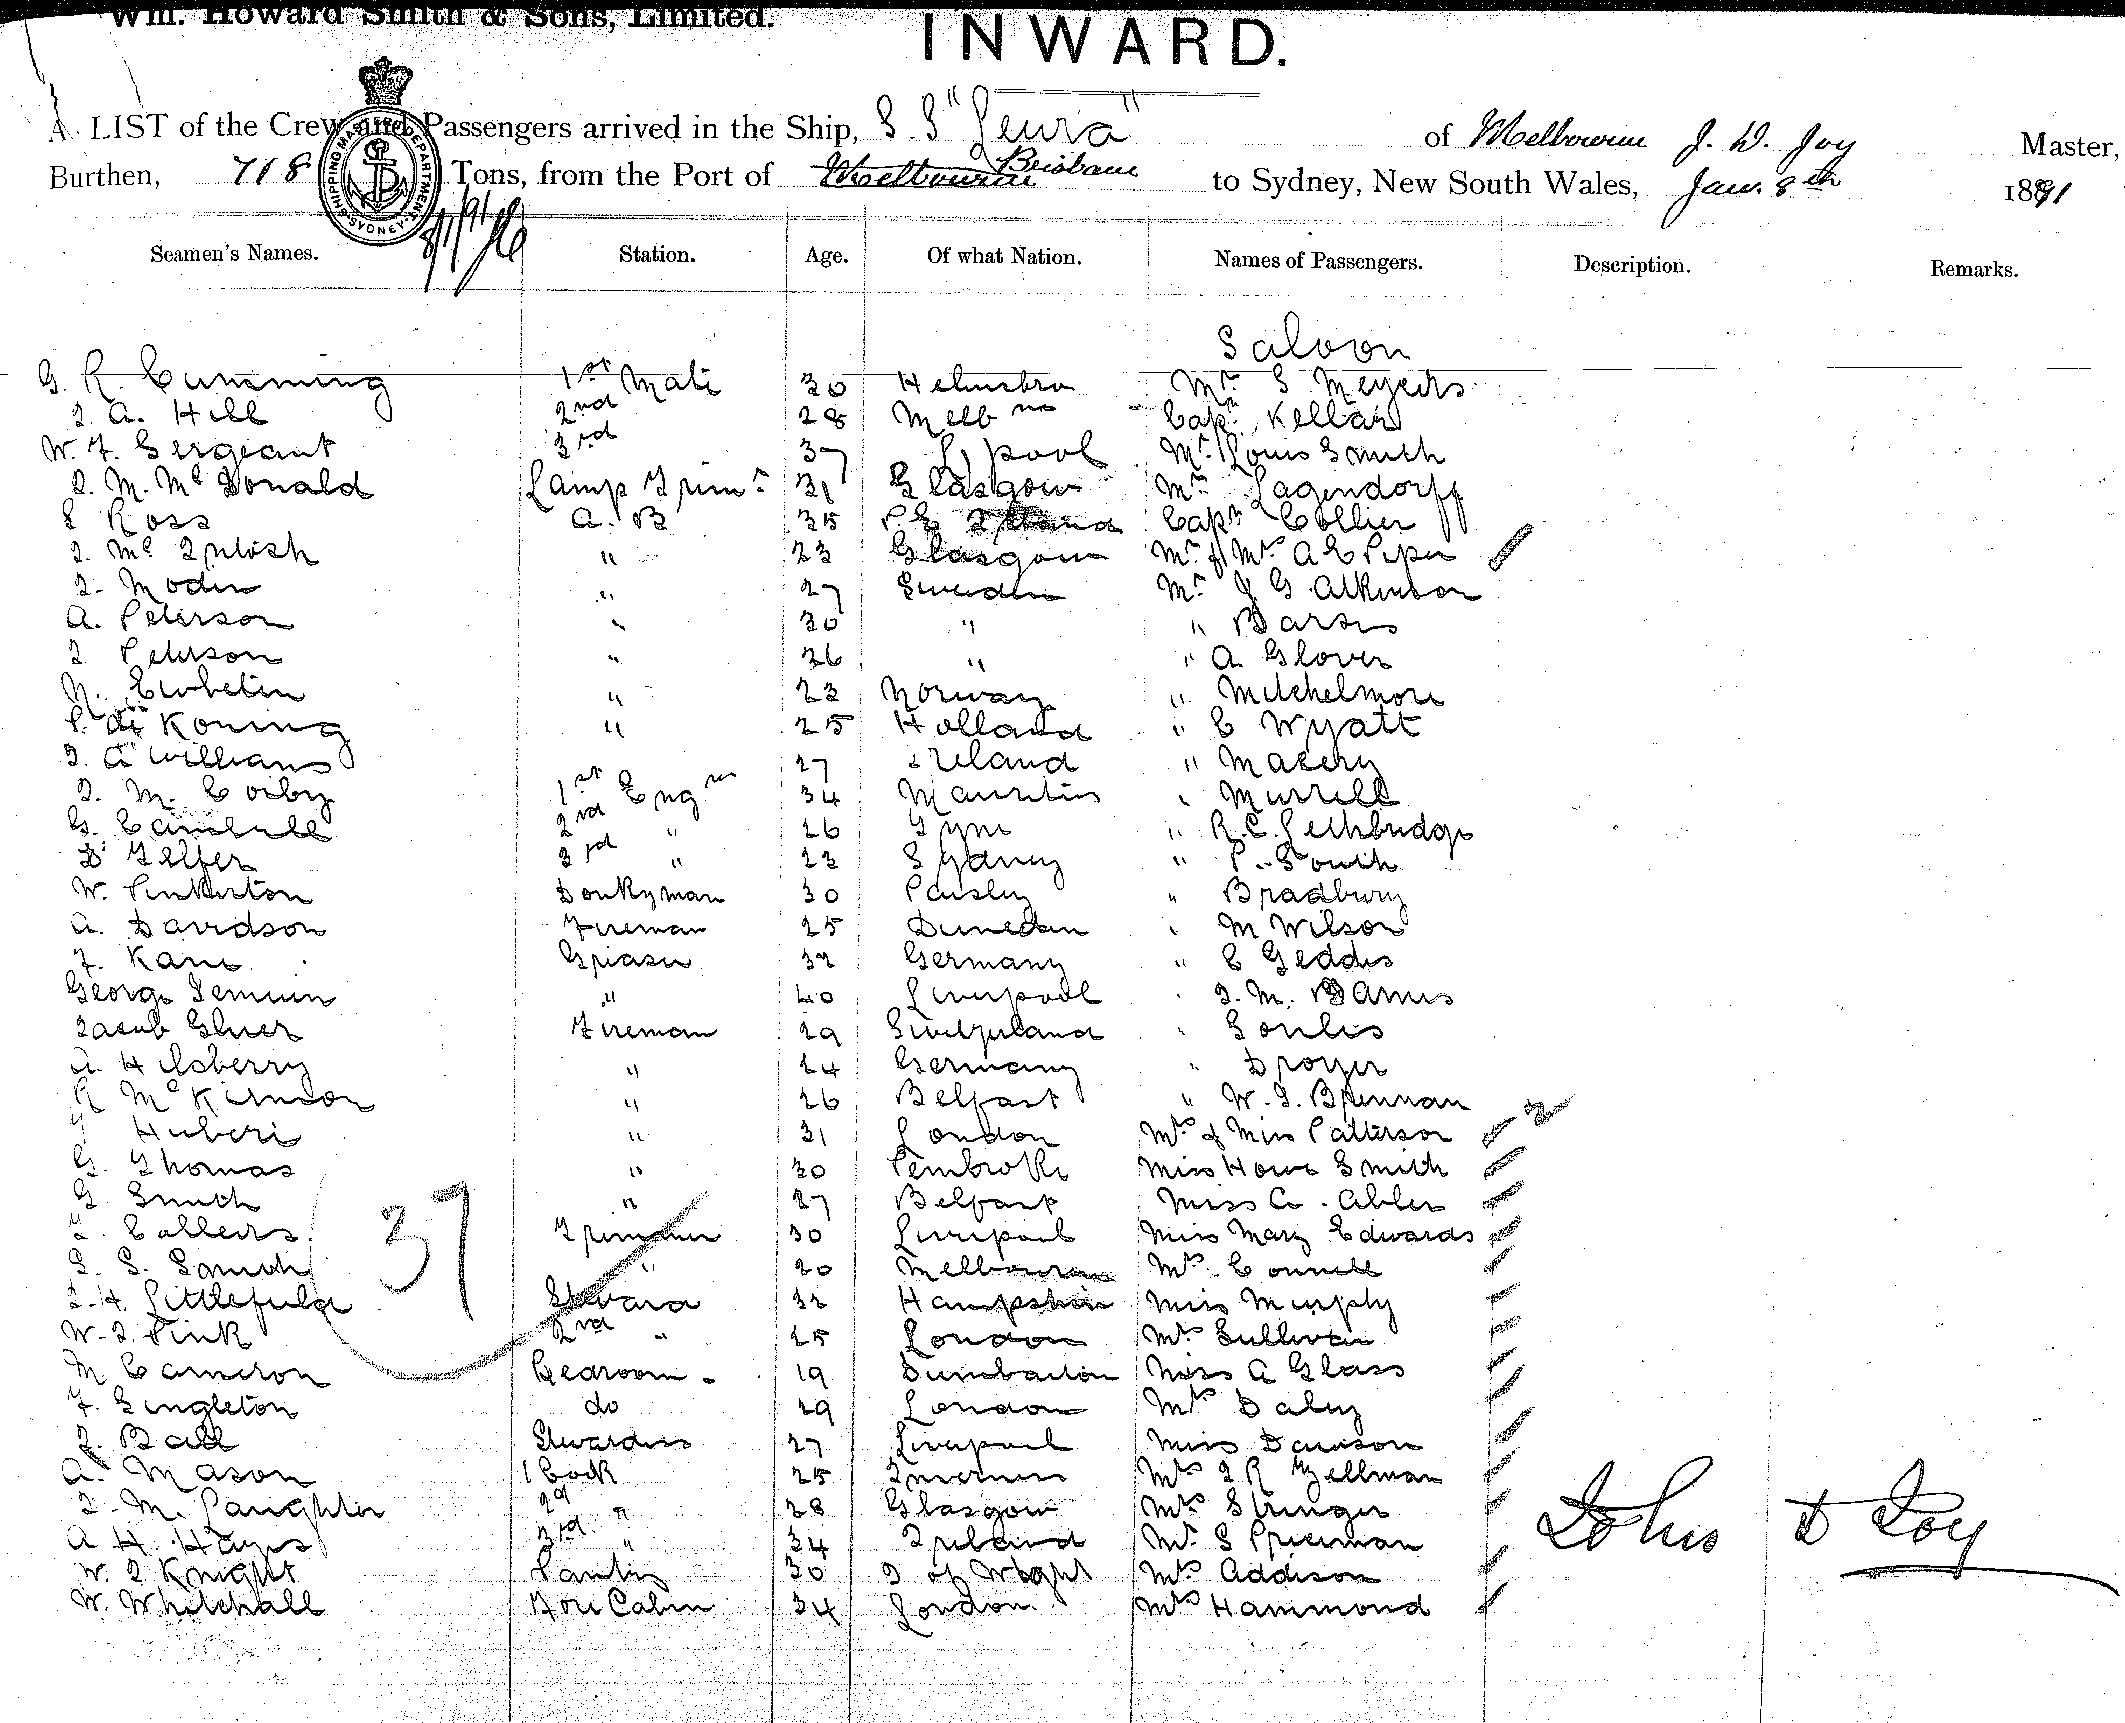 Wm. Howard Smith & Sons, Limited.
INWARD.
A LIST of the Crew and Passengers arrived in the Ship, S.S "Leura" of Melbourne J. D. Joy Master,
Burthen, 718 Tons, from the Port of Melbourne Brisbane to Sydney, New South Wales, Jan. 8th 1891
SHIPPING MASTERS DEPARTMENT SYDNEY
8/1/91
Seamen's Names. Station. Age. Of what Nation. Names of Passengers. Description. Remarks.
Saloon
G. R. Cumming 1st Mate 30 Mr S Meyers
J. A. Hill 2nd 28 Melbne Capt Kellar
W. F. Sergeant 3rd 37 L'pool Mr Louis Smith
J. M. McDonald Lamp Trimr 31 Glasgow Mr Lagendorff
Ross A. B 35 P.E Island Capt Collier
J. McIntosh " 23 Glasgow Mr & Mrs A E Piper
J. Modin " 27 Sweden Mr J G Atkinson
A. Peterson " 30 " "
J Peterson " 36 " " A. Glover
N. " 23 Norway " Mitchelmore
P. de Koning " 25 Holland " C Wyatt
J. A Williams 27 Ireland "
J. M. Corby 1st Engnr 34 Mauritius " Murrell
G. Campbell 2nd " 26 Tyne " R. C. Lethbridge
D Telfer 3rd " 23 Sydney " P. South
W. Pinkerton Donkyman 30 Paisley " Bradbury
A. Davidson Fireman 25 Dunedin " M Wilson
F. Kane Greaser 32 Germany " C Geddes
George Greaser " 40 Liverpool " J. M. Barnes
Jacob Fireman 29 Switzerland "
A Hilsberry " 24 Germany "
R McKinnon " 26 Belfast " W. J. Brennan
Huberi " 31 London Mrs & Miss Patterson 2
G. Thomas " 30 Pembroke Miss Howe Smith
G. Smith " 27 Belfast Miss C.
Trimmer 30 Liverpool Miss Mary Edwards
S. S. Smith " 20 Melbourne Mrs Connell
37
J. H. Littlefield Steward 32 Hampshire Miss Murphy
W. J. Pink 2nd " 25 London Mrs Sullivan
M Cameron Bedroom 19 Dumbarton Miss A Glass
F. Singleton do 29 London Mrs Daly
J. Ball Stewardess 27 Liverpool Miss Davison
A. Mason 1 Cook 25 Inverness Mrs J R Zellman
J. M. Laughlin 2d " 28 Glasgow Mrs Stringer
A H. Hayes 3rd " 34 Ireland Mr S
W. J Knight Pantry 30 I of Wight Mrs Addison
W. Whitehall Fore Cabin 34 London Mrs Hammond
John D Joy